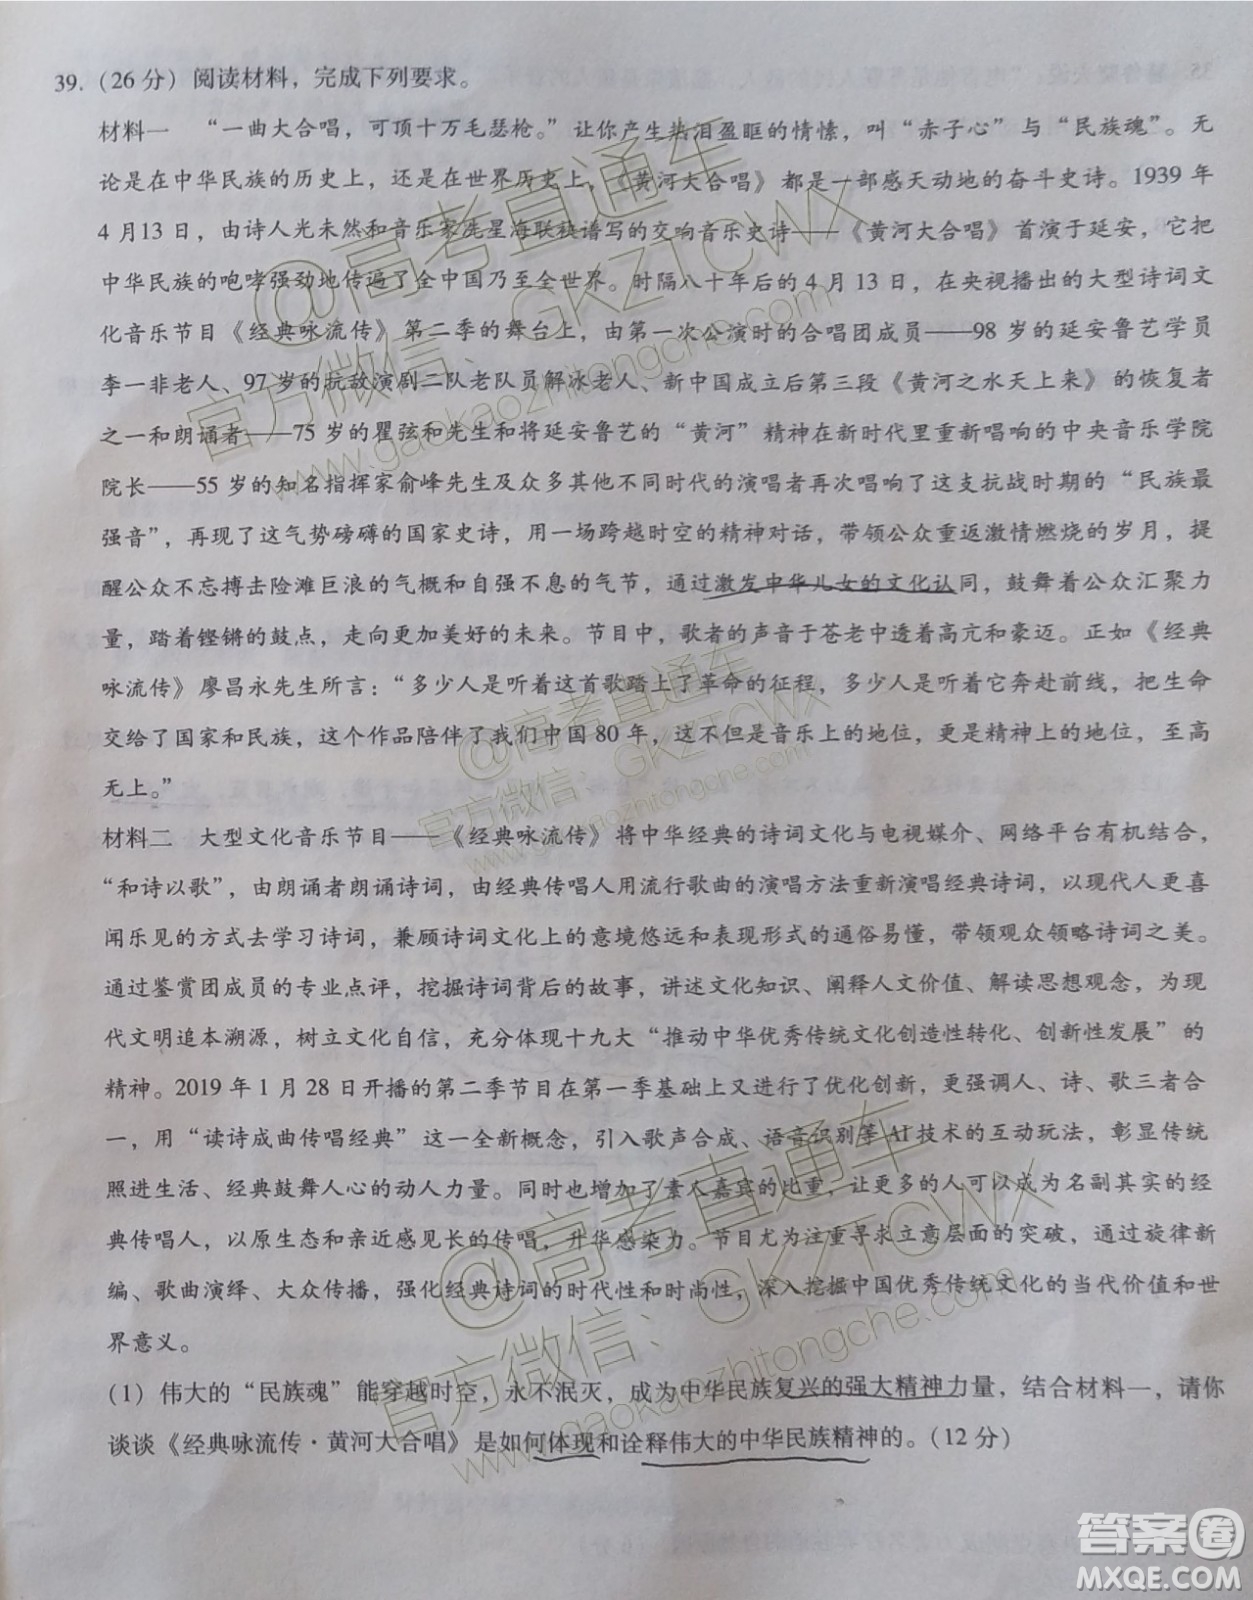 39.（26 分）阅读材料，完成下列要求。
材料一　“一曲大合唱，可顶十万毛瑟枪。”让你产生热泪盈眶的情愫，叫“赤子心”与“民族魂”。无
论是在中华民族的历史上，还是在世界历史上，《黄河大合唱》都是一部感天动地的奋斗史诗。1939 年
4 月13 日，由诗人光未然和音乐家冼星海联袂谱写的交响音乐史诗——《黄河大合唱》首演于延安，它把
中华民族的咆哮强劲地传遍了全中国乃至全世界。时隔八十年后的 4 月 13 日，在央视播出的大型诗词文
化音乐节目《经典咏流传》第二季的舞台上，由第一次公演时的合唱团成员——98 岁的延安鲁艺学员
李一非老人、97 岁的抗敌演剧二队老队员解冰老人、新中国成立后第三段《黄河之水天上来》的恢复者
之一和朗诵者——75 岁的瞿弦和先生和将延安鲁艺的“黄河”精神在新时代里重新唱响的中央音乐学院
院长——55 岁的知名指挥家俞峰先生及众多其他不同时代的演唱者再次唱响了这支抗战时期的“民族最
强音”，再现了这气势磅礴的国家史诗，用一场跨越时空的精神对话，带领公众重返激情燃烧的岁月，提
醒公众不忘搏击险滩巨浪的气概和自强不息的气节，通过激发中华儿女的文化认同，鼓舞着公众汇聚力
量，踏着铿锵的鼓点，走向更加美好的未来。节目中，歌者的声音于苍老中透着高亢和豪迈。正如《经典
咏流传》廖昌永先生所言：“多少人是听着这首歌踏上了革命的征程，多少人是听着它奔赴前线，把生命
交给了国家和民族，这个作品陪伴了我们中国 80 年，这不但是音乐上的地位，更是精神上的地位，至高
无上。”
材料二　大型文化音乐节目——《经典咏流传》将中华经典的诗词文化与电视媒介、网络平台有机结合，
“和诗以歌”，由朗诵者朗诵诗词，由经典传唱人用流行歌曲的演唱方法重新演唱经典诗词，以现代人更喜
闻乐见的方式去学习诗词，兼顾诗词文化上的意境悠远和表现形式的通俗易懂，带领观众领略诗词之美。
通过鉴赏团成员的专业点评，挖掘诗词背后的故事，讲述文化知识、阐释人文价值、解读思想观念，为现
代文明追本溯源，树立文化自信，充分体现十九大“推动中华优秀传统文化创造性转化、创新性发展”的
精神。2019 年 1 月 28 日开播的第二季节目在第一季基础上又进行了优化创新，更强调人、诗、歌三者合
一，用“读诗成曲传唱经典”这一全新概念，引入歌声合成、语音识别等 AI 技术的互动玩法，彰显传统
照进生活、经典鼓舞人心的动人力量。同时也增加了素人嘉宾的比重，让更多的人可以成为名副其实的经
典传唱人，以原生态和亲近感见长的传唱，升华感染力。节目尤为注重寻求立意层面的突破，通过旋律新
编、歌曲演绎、大众传播，强化经典诗词的时代性和时尚性，深入挖掘中国优秀传统文化的当代价值和世
界意义。
(1) 伟大的“民族魂”能穿越时空，永不泯灭，成为中华民族复兴的强大精神力量，结合材料一，请你
谈谈《经典咏流传·黄河大合唱》是如何体现和诠释伟大的中华民族精神的。（12 分）
@高考直通车
官方微信：GKZTCWX
www.gaokaozhitongche.com
@高考直通车
官方微信：GKZTCWX
www.gaokaozhitongche.com
@高考直通车
官方微信：GKZTCWX
www.gaokaozhitongche.com
答案圈
MXQE.COM